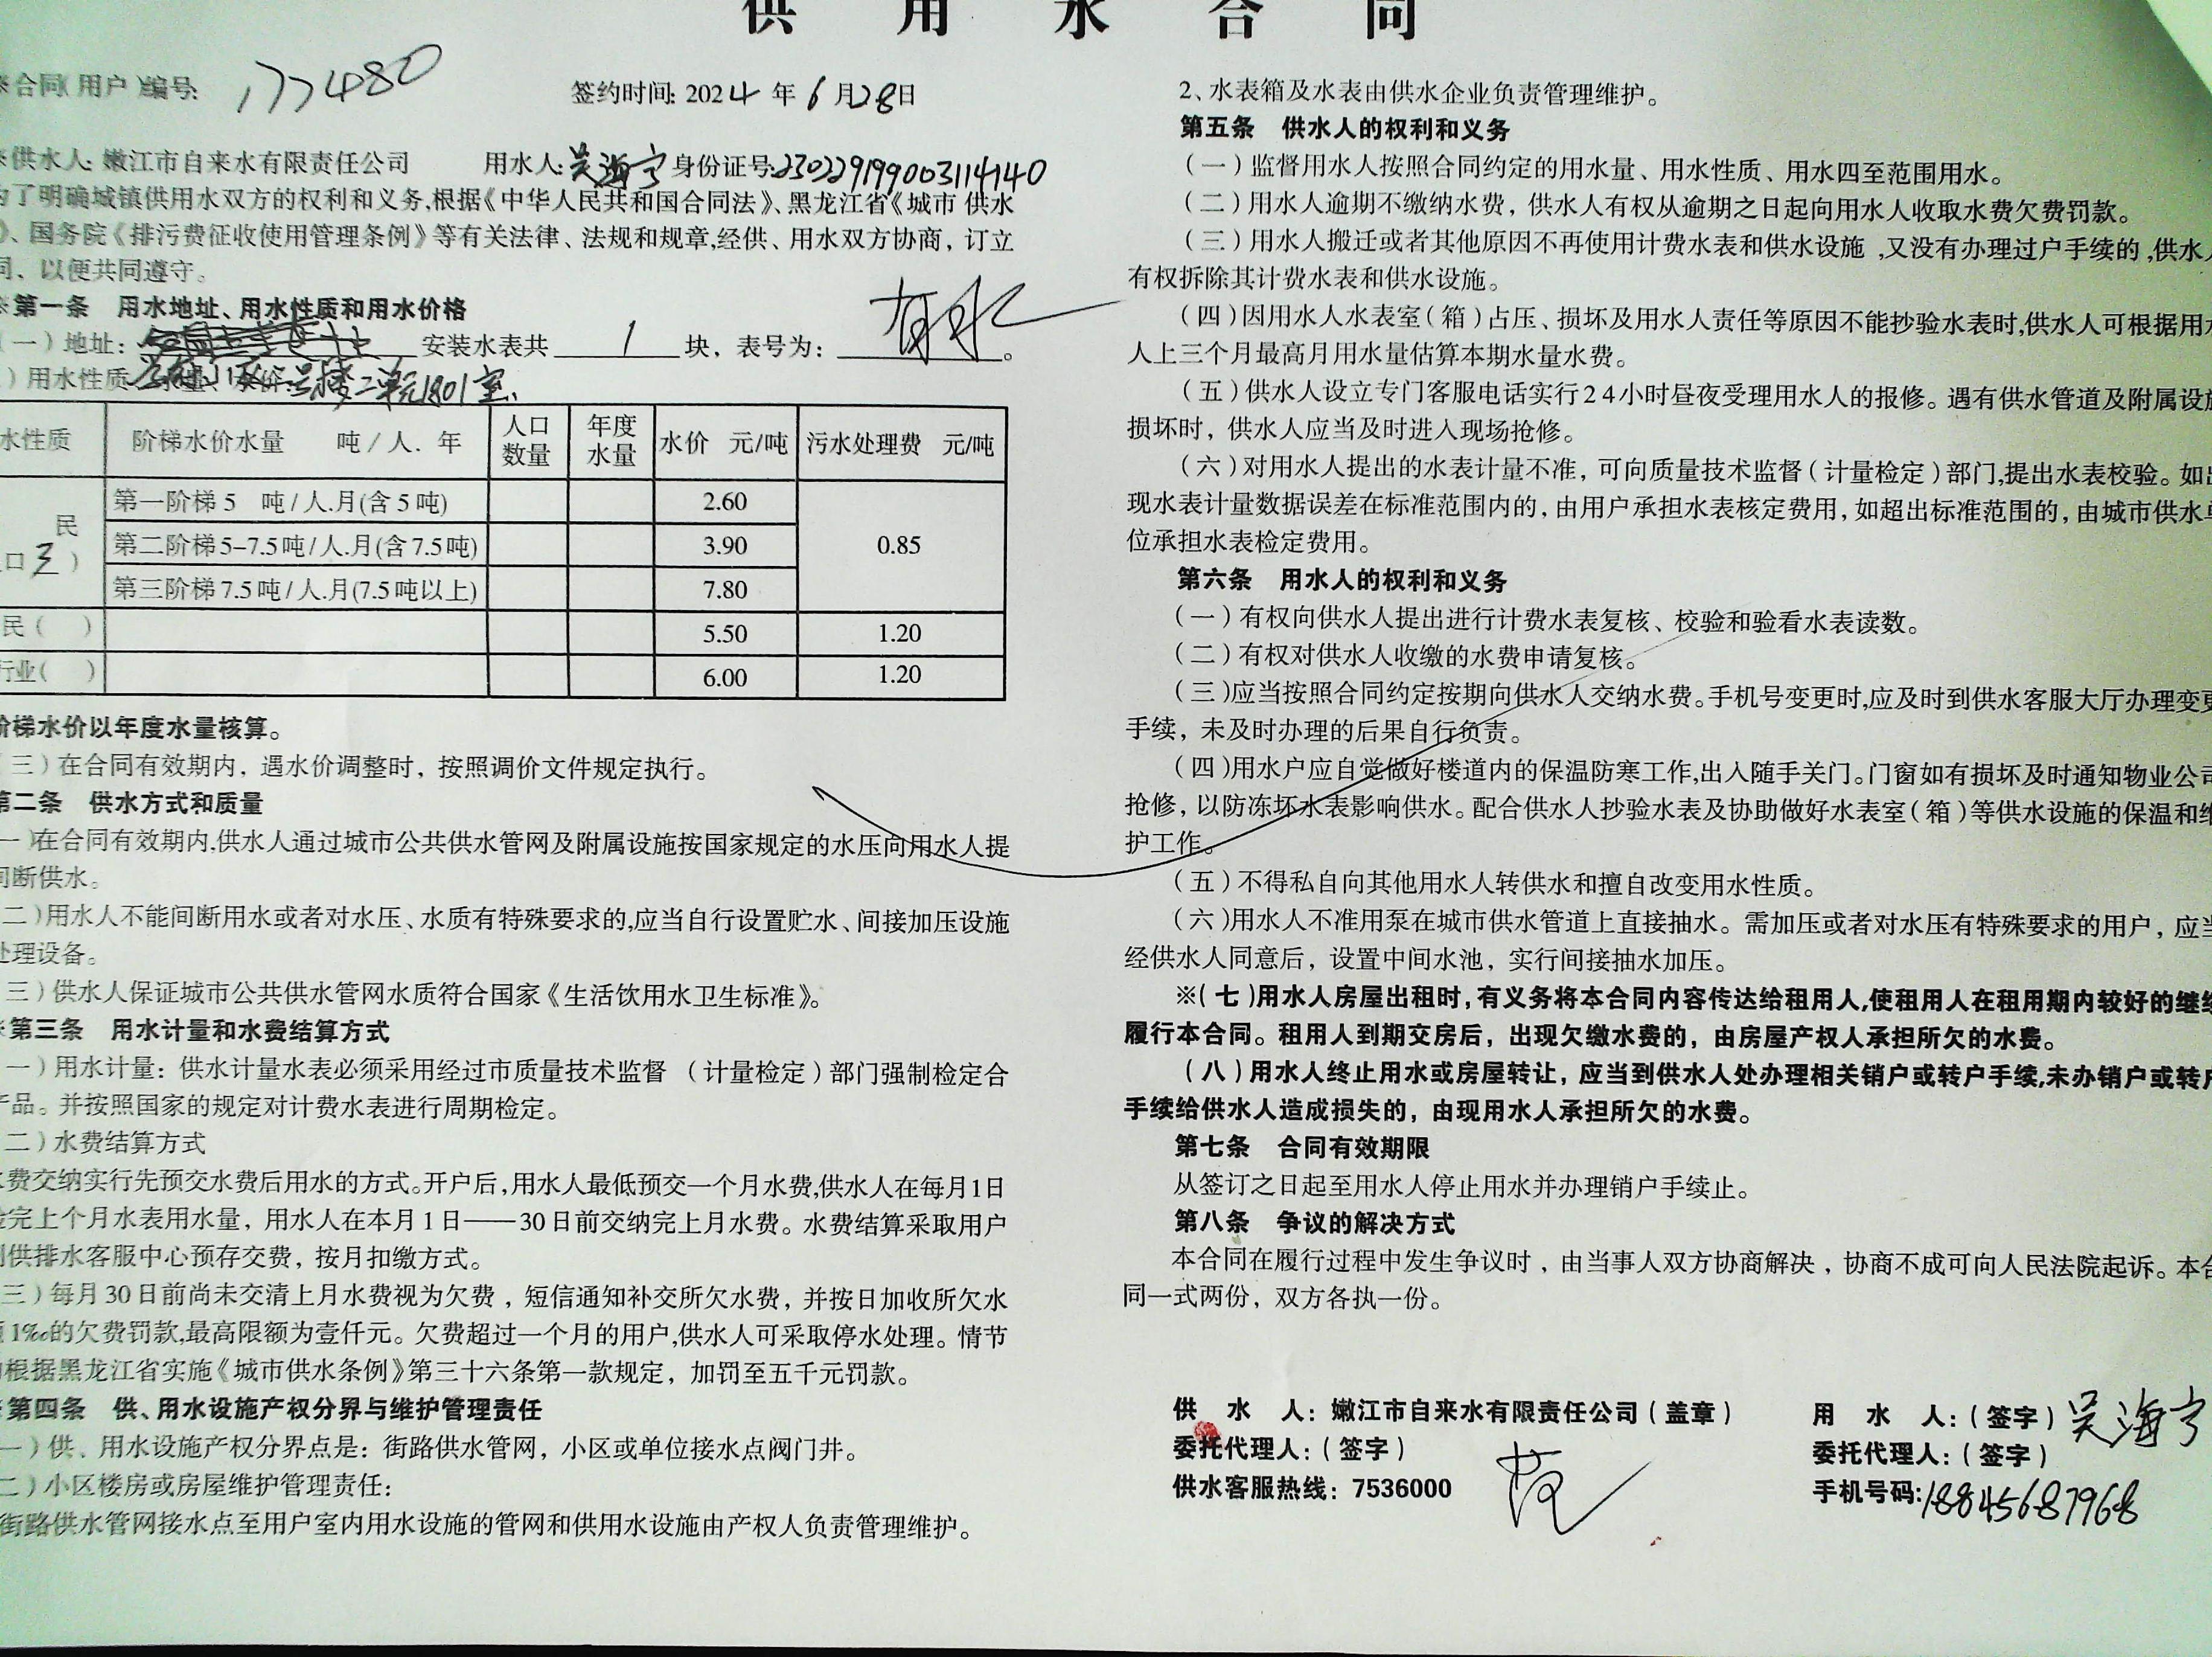 供用水合同
※合同(用户)编号: 177480 签约时间: 2024 年 6 月 28 日
※供水人: 嫩江市自来水有限责任公司 用水人: 吴海宁 身份证号: 230229199003114140
为了明确城镇供用水双方的权利和义务,根据《中华人民共和国合同法》、黑龙江省《城市 供水
》、国务院《排污费征收使用管理条例》等有关法律、法规和规章,经供、用水双方协商，订立
同、以便共同遵守。
※第一条 用水地址、用水性质和用水价格
(一)地址: 安装水表共 1 块，表号为:
)用水性质 号楼二单元1801室.
水性质 阶梯水价水量 吨/人.年 人口数量 年度水量 水价 元/吨 污水处理费 元/吨
民 口 三 )
第一阶梯 5 吨/人.月(含 5 吨) 2.60 0.85
第二阶梯 5-7.5 吨/人.月(含 7.5 吨) 3.90
第三阶梯 7.5 吨/人.月(7.5 吨以上) 7.80
民( ) 5.50 1.20
行业( ) 6.00 1.20
阶梯水价以年度水量核算。
(三)在合同有效期内，遇水价调整时，按照调价文件规定执行。
第二条 供水方式和质量
一)在合同有效期内,供水人通过城市公共供水管网及附属设施按国家规定的水压向用水人提
间断供水。
二)用水人不能间断用水或者对水压、水质有特殊要求的,应当自行设置贮水、间接加压设施
处理设备。
三)供水人保证城市公共供水管网水质符合国家《生活饮用水卫生标准》。
※第三条 用水计量和水费结算方式
一)用水计量：供水计量水表必须采用经过市质量技术监督 (计量检定)部门强制检定合
产品。并按照国家的规定对计费水表进行周期检定。
二)水费结算方式
费交纳实行先预交水费后用水的方式。开户后,用水人最低预交一个月水费,供水人在每月1日
完上个月水表用水量，用水人在本月 1 日——30 日前交纳完上月水费。水费结算采取用户
供排水客服中心预存交费，按月扣缴方式。
三)每月 30 日前尚未交清上月水费视为欠费，短信通知补交所欠水费，并按日加收所欠水
1‰的欠费罚款,最高限额为壹仟元。欠费超过一个月的用户,供水人可采取停水处理。情节
根据黑龙江省实施《城市供水条例》第三十六条第一款规定，加罚至五千元罚款。
第四条 供、用水设施产权分界与维护管理责任
一)供、用水设施产权分界点是：街路供水管网，小区或单位接水点阀门井。
二)小区楼房或房屋维护管理责任:
街路供水管网接水点至用户室内用水设施的管网和供用水设施由产权人负责管理维护。
2、水表箱及水表由供水企业负责管理维护。
第五条 供水人的权利和义务
(一)监督用水人按照合同约定的用水量、用水性质、用水四至范围用水。
(二)用水人逾期不缴纳水费，供水人有权从逾期之日起向用水人收取水费欠费罚款。
(三)用水人搬迁或者其他原因不再使用计费水表和供水设施,又没有办理过户手续的,供水人
有权拆除其计费水表和供水设施。
(四)因用水人水表室(箱)占压、损坏及用水人责任等原因不能抄验水表时,供水人可根据用水
人上三个月最高月用水量估算本期水量水费。
(五)供水人设立专门客服电话实行24小时昼夜受理用水人的报修。遇有供水管道及附属设施
损坏时，供水人应当及时进入现场抢修。
(六)对用水人提出的水表计量不准，可向质量技术监督(计量检定)部门,提出水表校验。如出
现水表计量数据误差在标准范围内的，由用户承担水表核定费用，如超出标准范围的，由城市供水单
位承担水表检定费用。
第六条 用水人的权利和义务
(一)有权向供水人提出进行计费水表复核、校验和验看水表读数。
(二)有权对供水人收缴的水费申请复核。
(三)应当按照合同约定按期向供水人交纳水费。手机号变更时,应及时到供水客服大厅办理变更
手续，未及时办理的后果自行负责。
(四)用水户应自觉做好楼道内的保温防寒工作,出入随手关门。门窗如有损坏及时通知物业公司
抢修，以防冻坏水表影响供水。配合供水人抄验水表及协助做好水表室(箱)等供水设施的保温和维
护工作。
(五)不得私自向其他用水人转供水和擅自改变用水性质。
(六)用水人不准用泵在城市供水管道上直接抽水。需加压或者对水压有特殊要求的用户，应当
经供水人同意后，设置中间水池，实行间接抽水加压。
※(七)用水人房屋出租时,有义务将本合同内容传达给租用人,使租用人在租用期内较好的继续
履行本合同。租用人到期交房后，出现欠缴水费的，由房屋产权人承担所欠的水费。
(八)用水人终止用水或房屋转让，应当到供水人处办理相关销户或转户手续,未办销户或转户
手续给供水人造成损失的，由现用水人承担所欠的水费。
第七条 合同有效期限
从签订之日起至用水人停止用水并办理销户手续止。
第八条 争议的解决方式
本合同在履行过程中发生争议时，由当事人双方协商解决，协商不成可向人民法院起诉。本合
同一式两份，双方各执一份。
供 水 人：嫩江市自来水有限责任公司(盖章) 用 水 人：(签字) 吴海宁
委托代理人：(签字) 委托代理人：(签字)
供水客服热线：7536000 手机号码: 18845687968